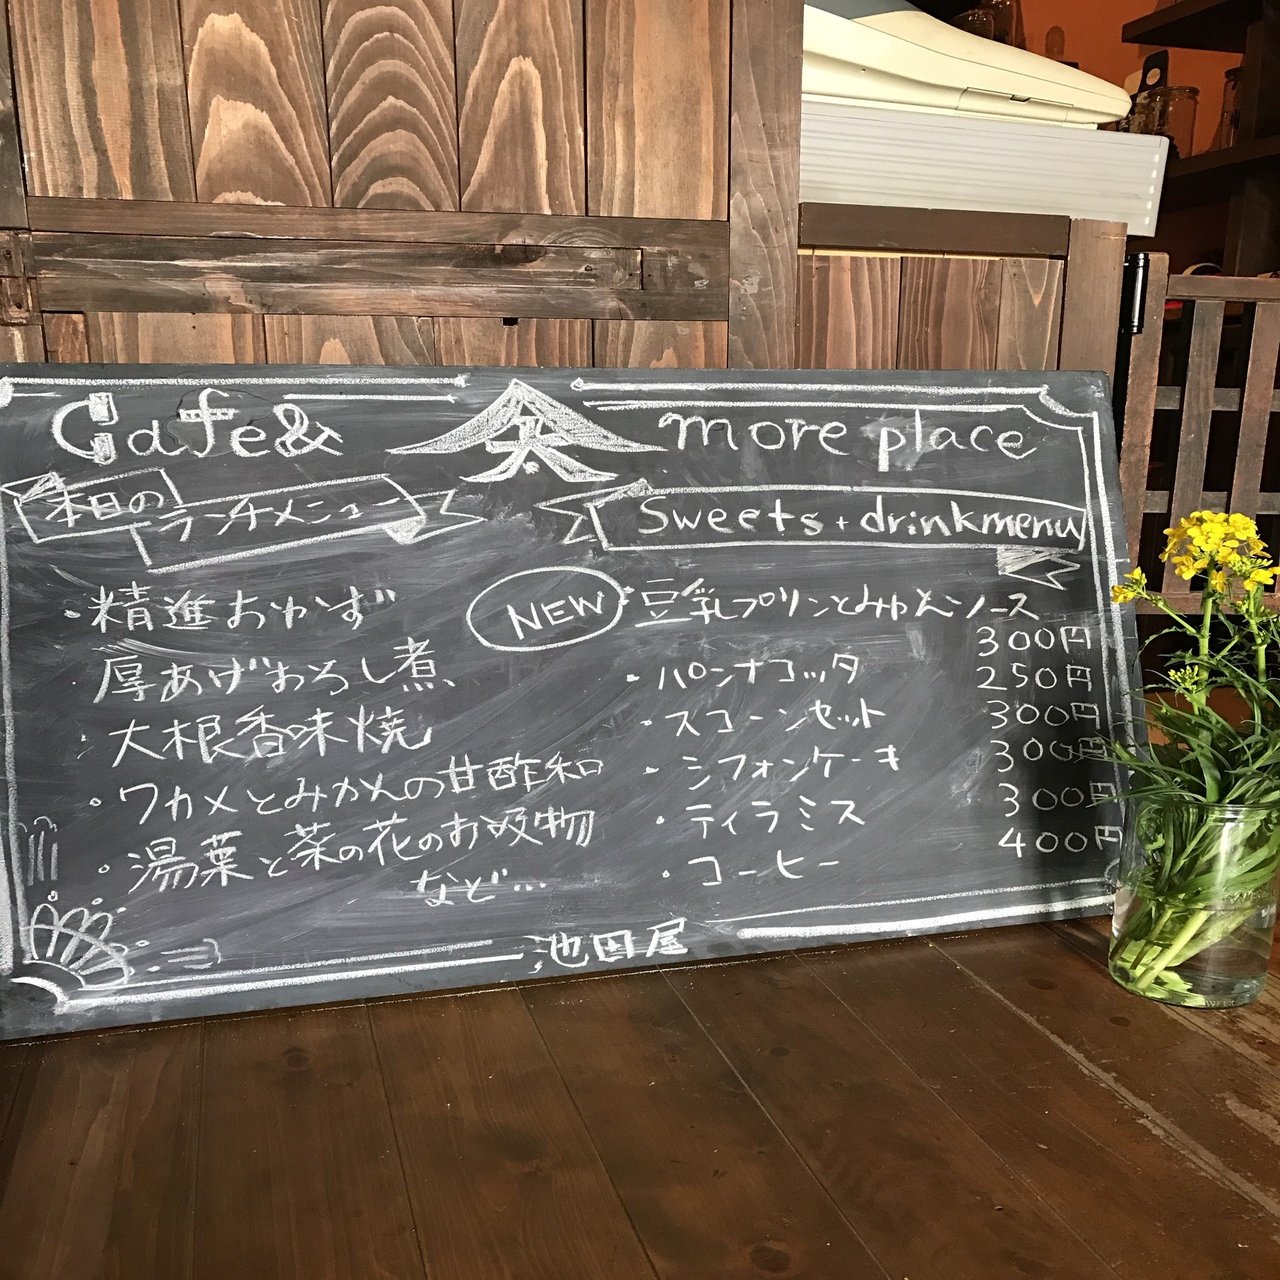 Cafe& more place
本日の
ランチメニュー
・精進おかず
厚あげおろし煮
・大根香味焼
・ワカメとみかんの甘酢和
・湯葉と菜の花のお吸物
など…
Sweets + drink menu
NEW ・豆乳プリンとみかんソース
300円
・パンナコッタ 250円
・スコーンセット 300円
・シフォンケーキ 300円
・ティラミス 300円
・コーヒー 400円
池田屋